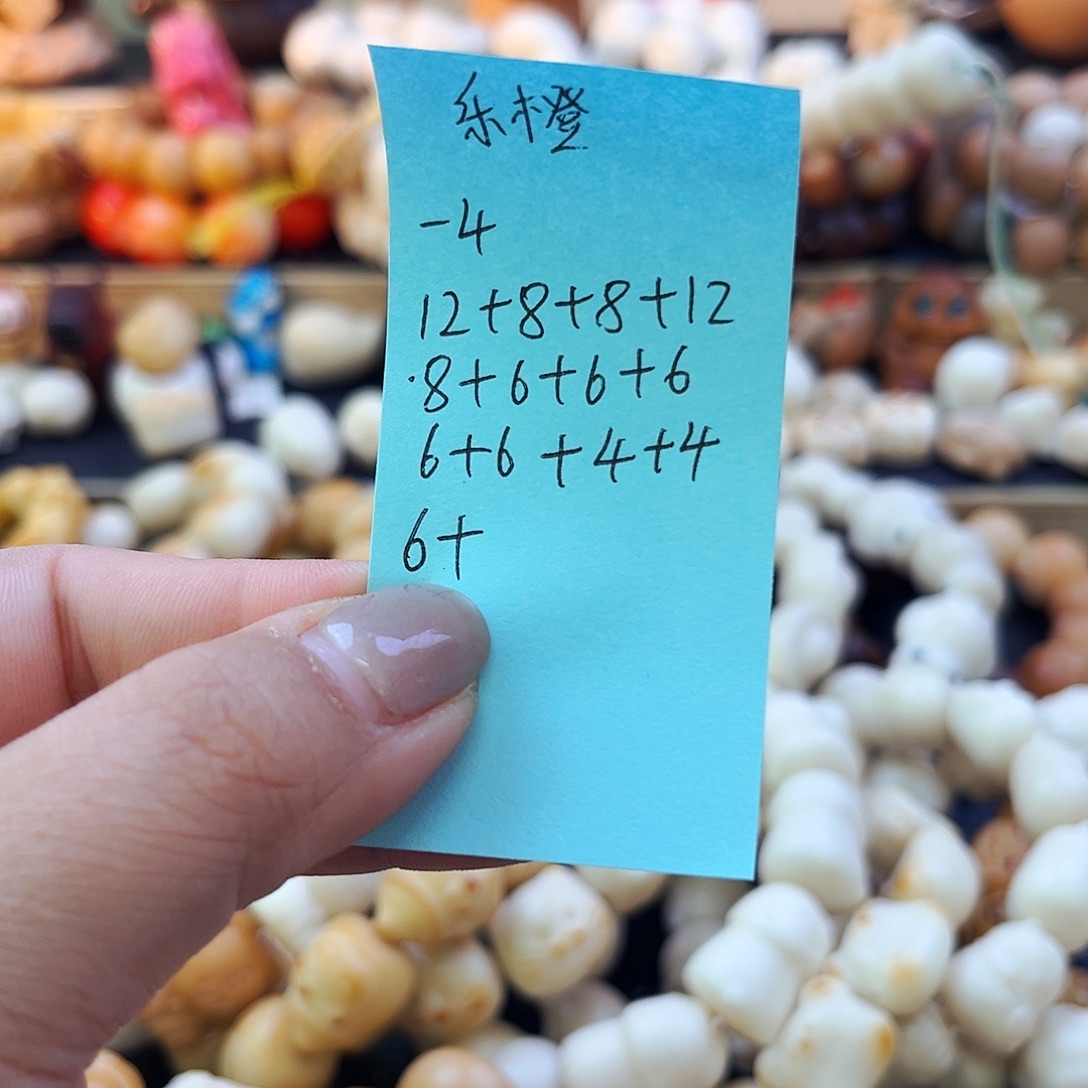 乐橙
-4
12+8+8+12
8+6+6+6
6+6+4+4
6+